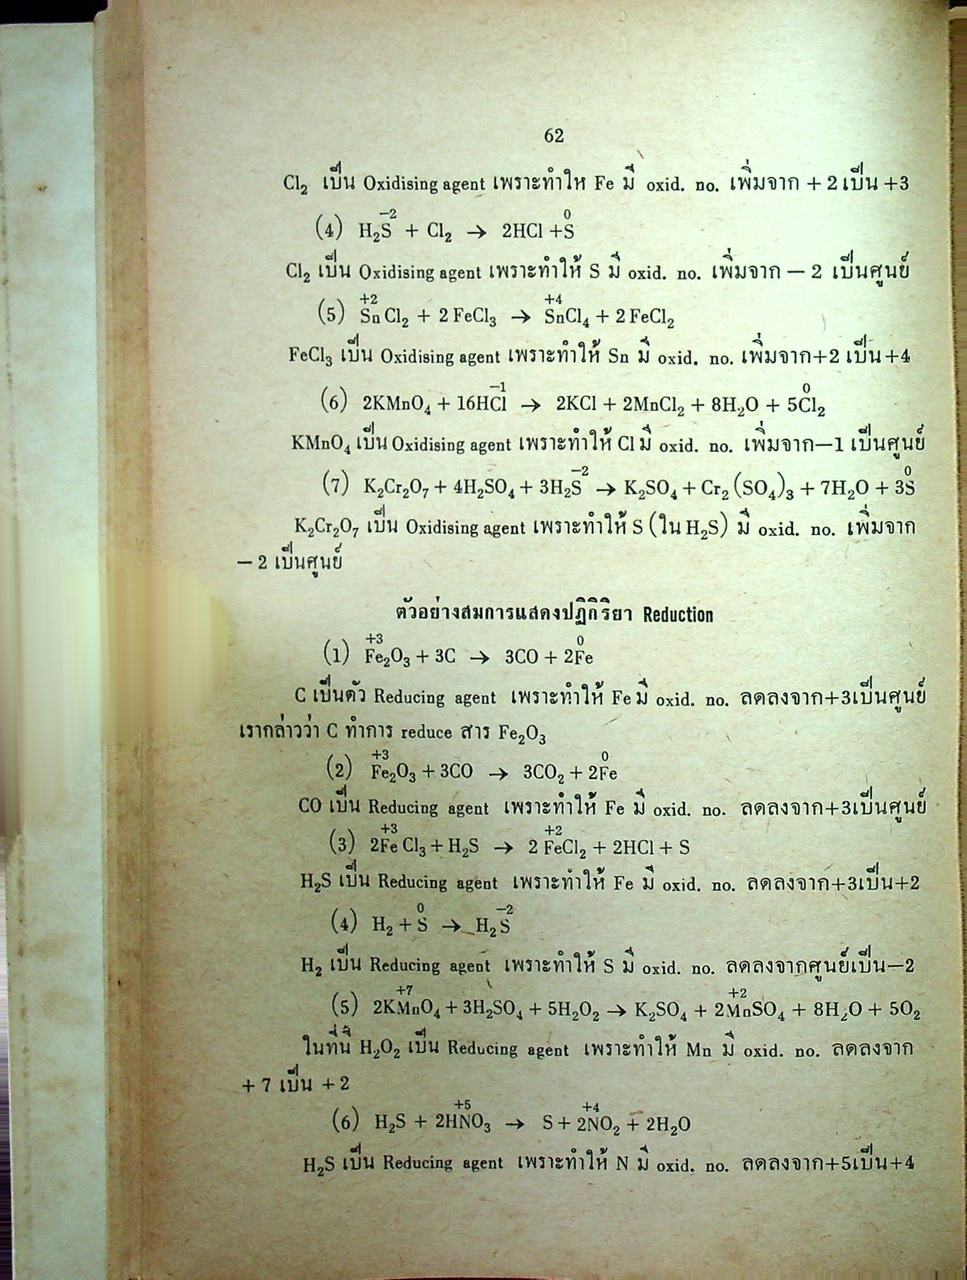 62
Cl₂ เป็น Oxidising agent เพราะทำให Fe มี oxid. no. เพิ่มจาก + 2 เป็น +3
−2 0
(4) H₂S + Cl₂ → 2HCl + S
Cl₂ เป็น Oxidising agent เพราะทำให้ S มี oxid. no. เพิ่มจาก − 2 เป็นศูนย์
+2 +4
(5) SnCl₂ + 2 FeCl₃ → SnCl₄ + 2 FeCl₂
FeCl₃ เป็น Oxidising agent เพราะทำให้ Sn มี oxid. no. เพิ่มจาก+2 เป็น+4
−1 0
(6) 2KMnO₄ + 16HCl → 2KCl + 2MnCl₂ + 8H₂O + 5Cl₂
KMnO₄ เป็น Oxidising agent เพราะทำให้ Cl มี oxid. no. เพิ่มจาก−1 เป็นศูนย์
−2 0
(7) K₂Cr₂O₇ + 4H₂SO₄ + 3H₂S → K₂SO₄ + Cr₂ (SO₄)₃ + 7H₂O + 3S
K₂Cr₂O₇ เป็น Oxidising agent เพราะทำให้ S (ใน H₂S) มี oxid. no. เพิ่มจาก
− 2 เป็นศูนย์
ตัวอย่างสมการแสดงปฏิกิริยา Reduction
+3 0
(1) Fe₂O₃ + 3C → 3CO + 2Fe
C เป็นตัว Reducing agent เพราะทำให้ Fe มี oxid. no. ลดลงจาก+3เป็นศูนย์
เรากล่าวว่า C ทำการ reduce สาร Fe₂O₃
+3 0
(2) Fe₂O₃ + 3CO → 3CO₂ + 2Fe
CO เป็น Reducing agent เพราะทำให้ Fe มี oxid. no. ลดลงจาก+3เป็นศูนย์
+3 +2
(3) 2FeCl₃ + H₂S → 2 FeCl₂ + 2HCl + S
H₂S เป็น Reducing agent เพราะทำให้ Fe มี oxid. no. ลดลงจาก+3เป็น+2
0 −2
(4) H₂ + S → H₂S
H₂ เป็น Reducing agent เพราะทำให้ S มี oxid. no. ลดลงจากศูนย์เป็น−2
+7 +2
(5) 2KMnO₄ + 3H₂SO₄ + 5H₂O₂ → K₂SO₄ + 2MnSO₄ + 8H₂O + 5O₂
ในที่นี้ H₂O₂ เป็น Reducing agent เพราะทำให้ Mn มี oxid. no. ลดลงจาก
+ 7 เป็น + 2
+5 +4
(6) H₂S + 2HNO₃ → S + 2NO₂ + 2H₂O
H₂S เป็น Reducing agent เพราะทำให้ N มี oxid. no. ลดลงจาก+5เป็น+4